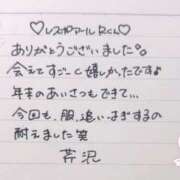 ♡レスポアール Rくん♡
ありがとうございました。
会えてすごーく嬉しかったです♪
年末のあいさつもできて...
今回も、服、追いはぎするの
耐えました 笑
芹沢